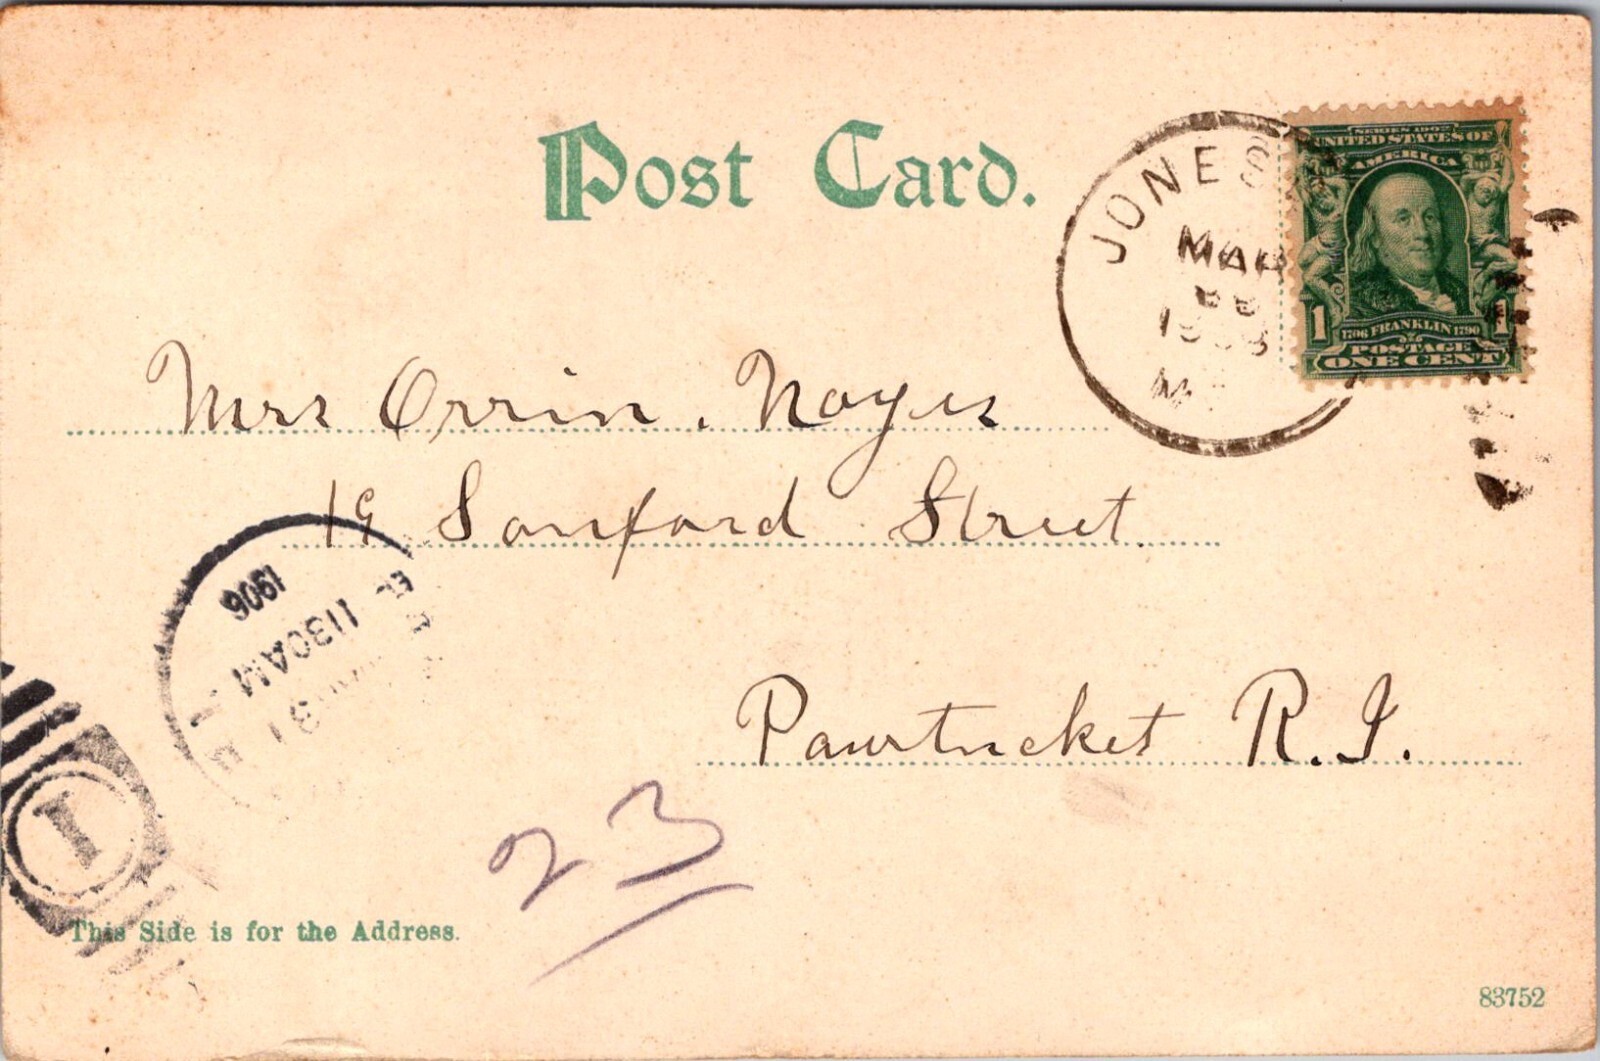 Post Card.
JONES
MAR
SERIES 1902
UNITED STATES OF
AMERICA
1 1706 FRANKLIN 1790 1
POSTAGE
ONE CENT
Mrs Orrin. Noyes
19 Sanford Street.
Pawtucket R.I.
1906
1130AM
31
1
23
This Side is for the Address.
83752